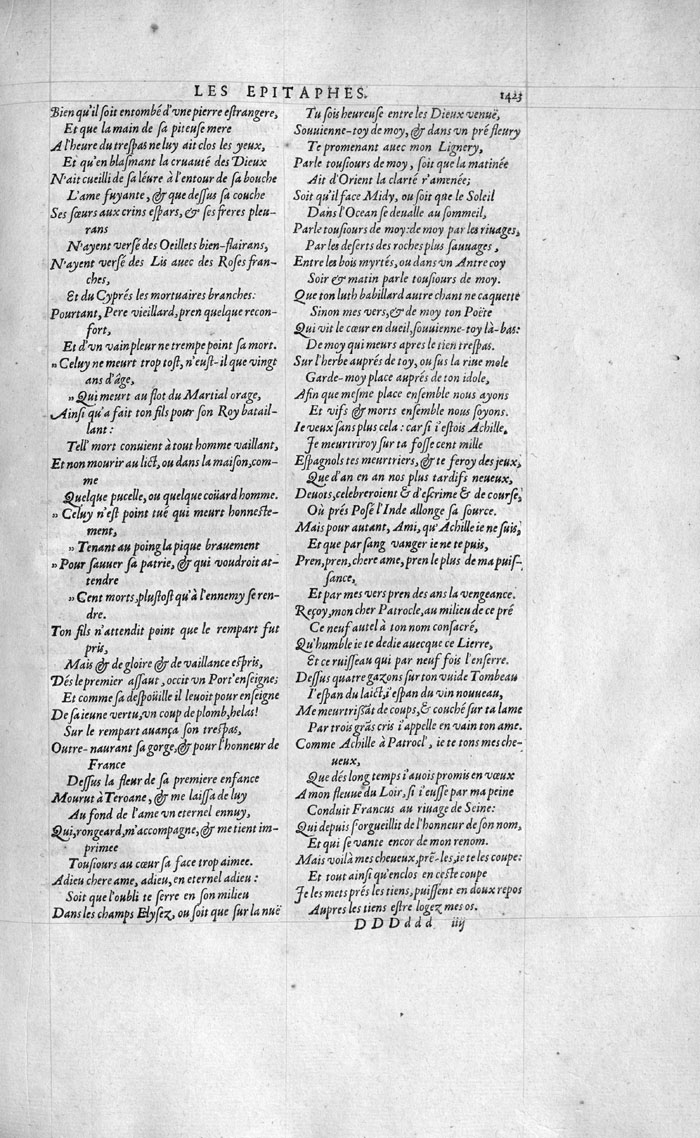 LES EPITAPHES. 1423
Bien qu'il soit entombé d'vne pierre estrangere,
Et que la main de sa piteuse mere
A l'heure du trespas ne luy ait clos les yeux,
Et qu'en blasmant la cruauté des Dieux
N'ait cueilli de sa léure à l'entour de sa bouche
L'ame fuyante, & que dessus sa couche
Ses sœurs aux crins espars, & ses freres pleu-
rans
N'ayent versé des Oeillets bien-flairans,
N'ayent versé des Lis auec des Roses fran-
ches,
Et du Cyprés les mortuaires branches:
Pourtant, Pere vieillard, pren quelque recon-
fort,
Et d'vn vain pleur ne trempe point sa mort.
» Celuy ne meurt trop tost, n'eust-il que vingt
ans d'âge,
» Qui meurt au flot du Martial orage,
Ainsi qu'a fait ton fils pour son Roy batail-
lant:
Tell' mort conuient à tout homme vaillant,
Et non mourir au lict, ou dans la maison, com-
me
Quelque pucelle, ou quelque coüard homme.
» Celuy n'est point tué qui meurt honneste-
ment,
» Tenant au poing la pique brauement
» Pour sauuer sa patrie, & qui voudroit at-
tendre
» Cent morts, plustost qu'à l'ennemy se ren-
dre.
Ton fils n'attendit point que le rempart fut
pris,
Mais & de gloire & de vaillance espris,
Dés le premier assaut, occit vn Port'enseigne;
Et comme sa despoüille il leuoit pour enseigne
De sa ieune vertu, vn coup de plomb, helas!
Sur le rempart auança son trespas,
Outre-naurant sa gorge, & pour l'honneur de
France
Dessus la fleur de sa premiere enfance
Mourut à Teroane, & me laissa de luy
Au fond de l'ame vn eternel ennuy,
Qui, rongeard, m'accompagne, & me tient im-
primee
Tousiours au cœur sa face trop aimee.
Adieu chere ame, adieu, en eternel adieu:
Soit que l'oubli te serre en son milieu
Dans les champs Elysez, ou soit que sur la nuë
Tu sois heureuse entre les Dieux venuë,
Souuienne-toy de moy, & dans vn pré fleury
Te promenant auec mon Lignery,
Parle tousiours de moy, soit que la matinée
Ait d'Orient la clarté r'amenée;
Soit qu'il face Midy, ou soit que le Soleil
Dans l'Ocean se deualle au sommeil,
Parle tousiours de moy: de moy par les riuages,
Par les deserts des roches plus sauuages,
Entre les bois myrtés, ou dans vn Antre coy
Soir & matin parle tousiours de moy.
Que ton luth babillard autre chant ne caquette
Sinon mes vers, & de moy ton Poëte
Qui vit le cœur en dueil, souuienne-toy là-bas:
De moy qui meurs apres le tien trespas.
Sur l'herbe auprés de toy, ou sus la riue mole
Garde-moy place auprés de ton idole,
Afin que mesme place ensemble nous ayons
Et vifs & morts ensemble nous soyons.
Ie veux sans plus cela: car si i'estois Achille,
Ie meurtriroy sur ta fosse cent mille
Espagnols tes meurtriers, & te feroy des jeux,
Que d'an en an nos plus tardifs neueux,
Deuots, celebreroient & d'escrime & de course,
Où prés Posé l'Inde allonge sa source.
Mais pour autant, Ami, qu'Achille ie ne suis,
Et que par sang vanger ie ne te puis,
Pren, pren, chere ame, pren le plus de ma puis-
sance,
Et par mes vers pren des ans la vengeance.
Reçoy, mon cher Patrocle, au milieu de ce pré
Ce neuf autel à ton nom consacré,
Qu'humble ie te dedie auecque ce Lierre,
Et ce ruisseau qui par neuf fois l'enserre.
Dessus quatre gazons sur ton vuide Tombeau
I'espan du laict, i'espan du vin nouueau,
Me meurtrissãt de coups, & couché sur ta lame
Par trois grãs cris i'appelle en vain ton ame.
Comme Achille à Patrocl', ie te tons mes che-
ueux,
Que dés long temps i'auois promis en vœux
A mon fleuue du Loir, si i'eusse par ma peine
Conduit Francus au riuage de Seine:
Qui depuis s'orgueillit de l'honneur de son nom,
Et qui se vante encor de mon renom.
Mais voilà mes cheueux, prẽ-les, ie te les coupe:
Et tout ainsi qu'enclos en ceste coupe
Ie les mets prés les tiens, puissent en doux repos
Aupres les tiens estre logez mes os.
DDDddd iiij